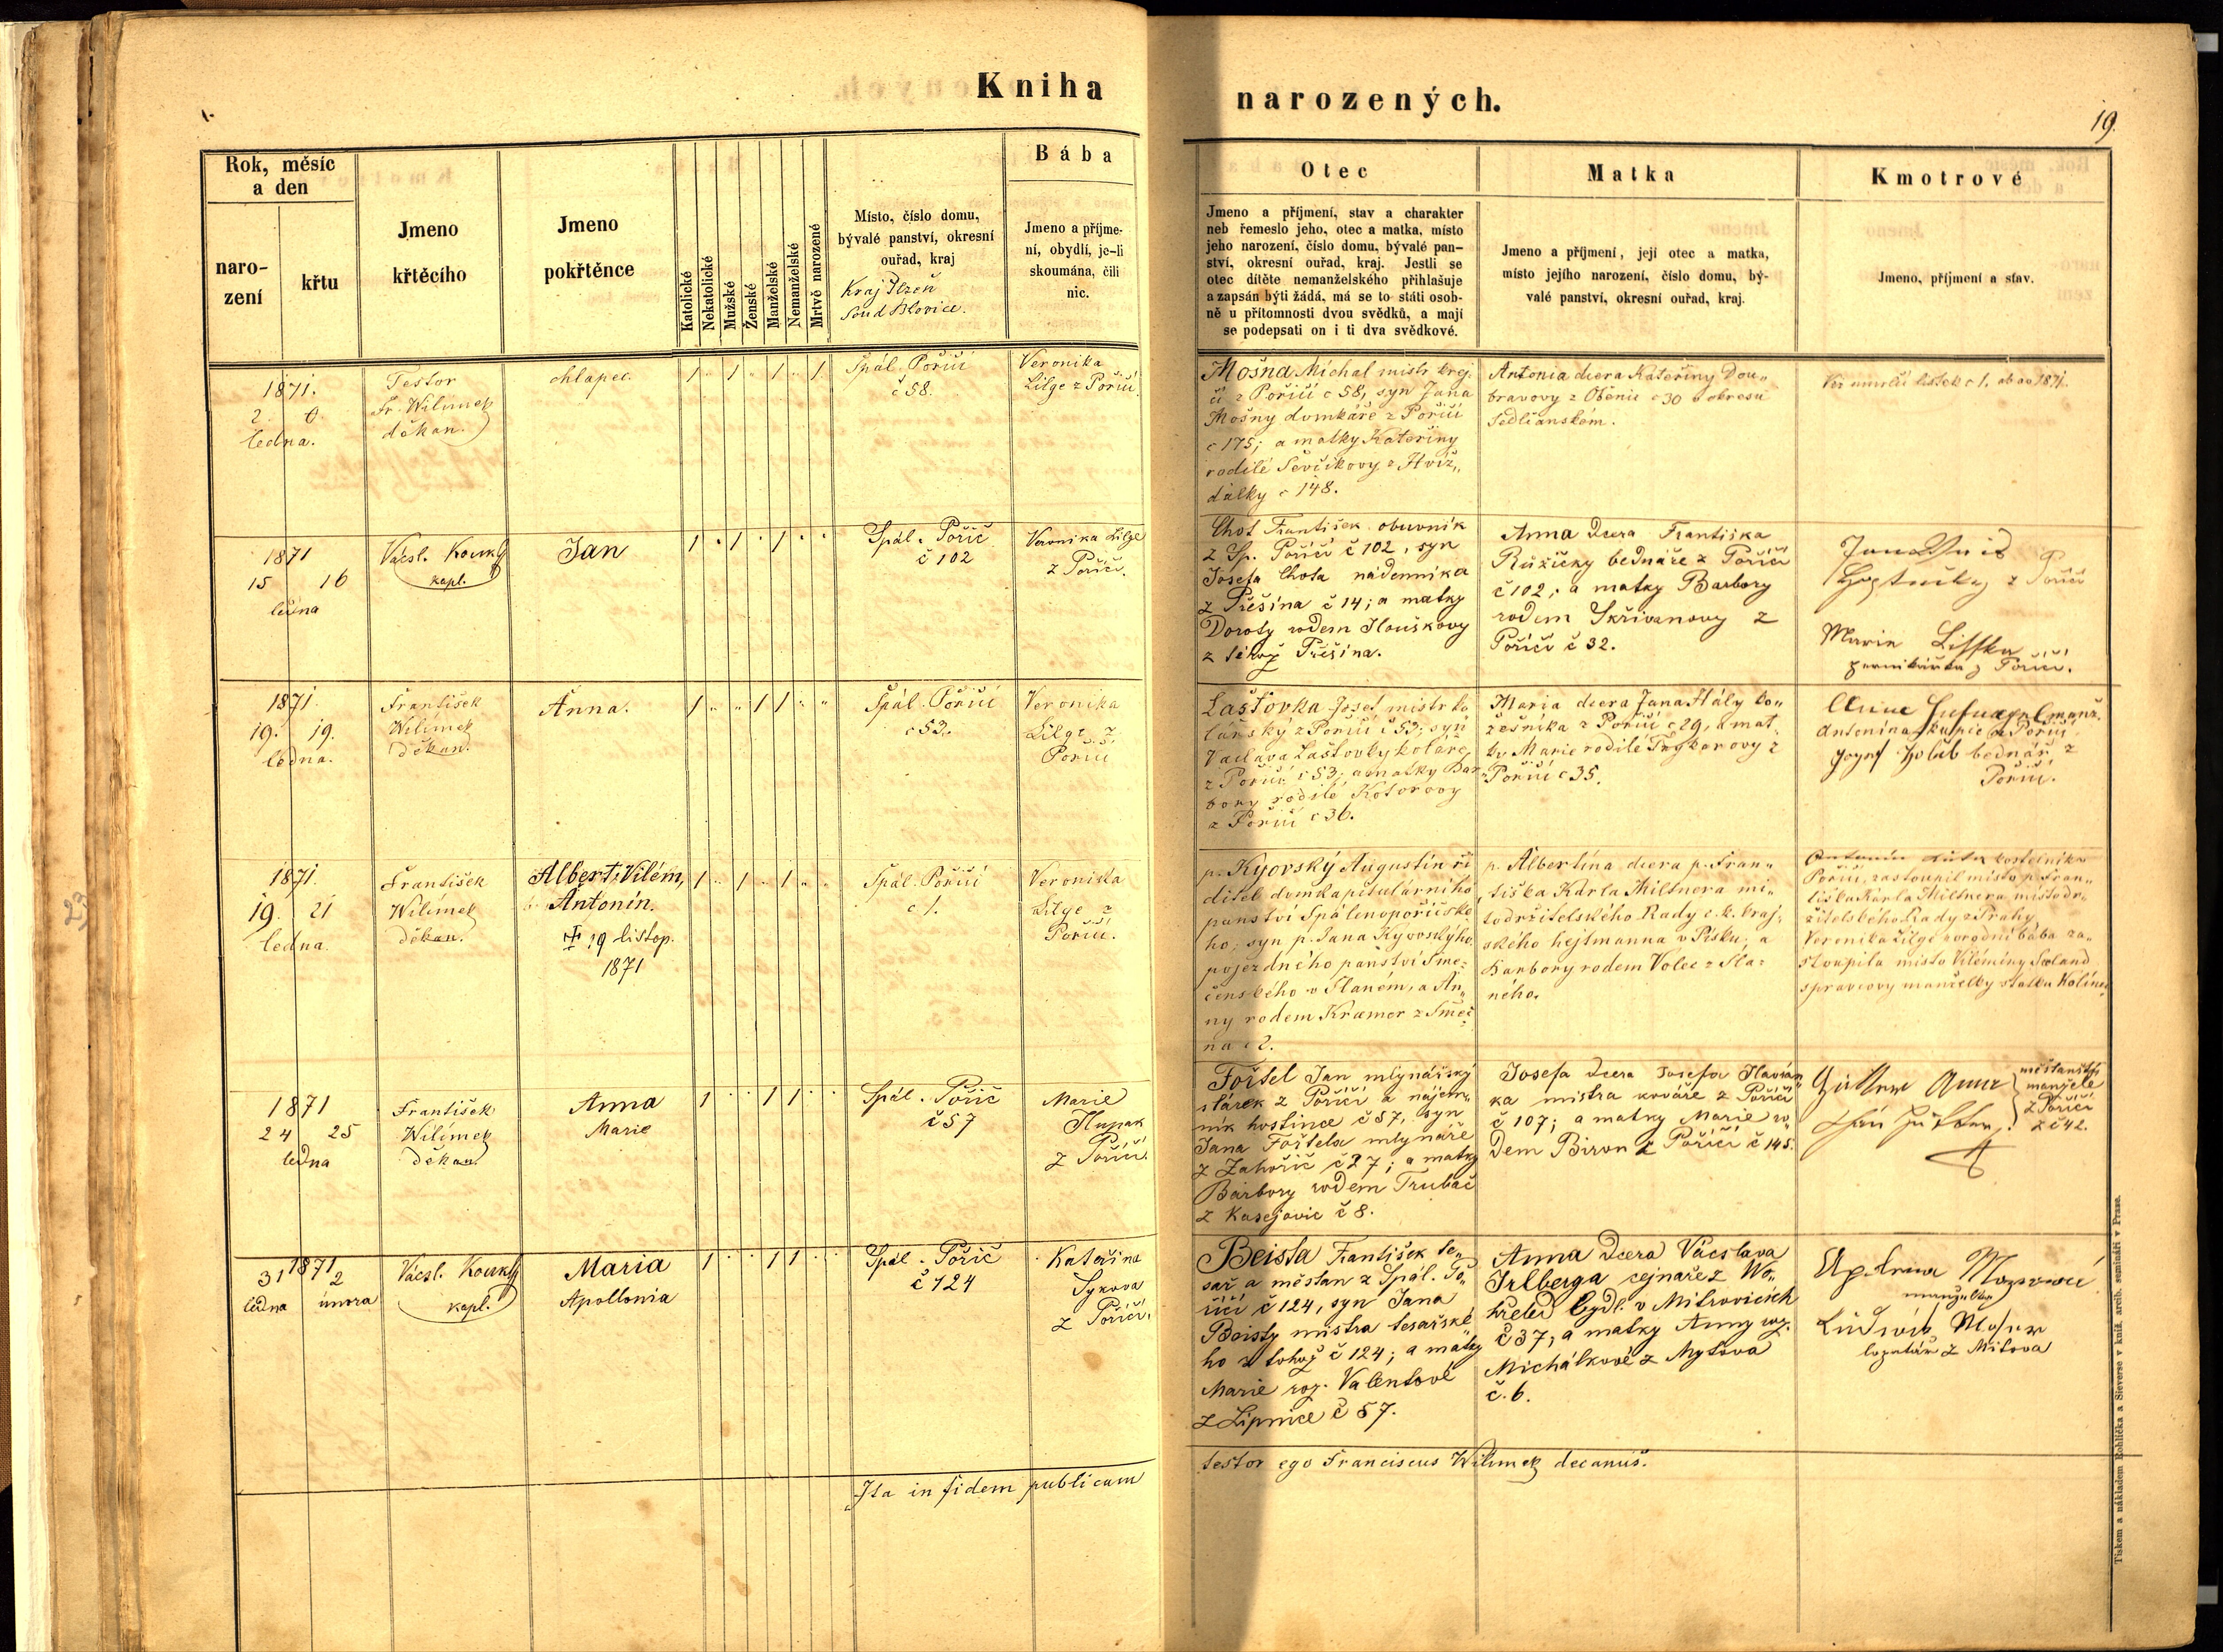 Kniha narozených.
19.
Rok, měsíc
a den
naro-
zení
křtu
Jmeno
křtěcího
Jmeno
pokřtěnce
Katolické
Nekatolické
Mužské
Ženské
Manželské
Nemanželské
Mrtvě narozené
Místo, číslo domu,
bývalé panství, okresní
ouřad, kraj
Kraj Plzeň
Soud Blovice.
Bába
Jmeno a příjme-
ní, obydlí, je-li
skoumána, čili
nic.
Otec
Jmeno a příjmení, stav a charakter
neb řemeslo jeho, otec a matka, místo
jeho narození, číslo domu, bývalé pan-
ství, okresní ouřad, kraj. Jestli se
otec dítěte nemanželského přihlašuje
a zapsán býti žádá, má se to státi osob-
ně u přítomnosti dvou svědků, a mají
se podepsati on i ti dva svědkové.
Matka
Jmeno a příjmení, její otec a matka,
místo jejího narození, číslo domu, bý-
valé panství, okresní ouřad, kraj.
Kmotrové
Jmeno, příjmení a stav.
1871.
2. 0.
ledna.
Testor
Fr. Wilímek
děkan.
chlapec.
1 " 1 " 1 " 1
Spál. Poříčí
č 58.
Veronika
Lilge z Poříčí.
Mošna Michal mistr krej
čí z Poříčí č 58, syn Jana
Mošny domkáře z Poříčí
č 175; a matky Kateřiny
rodilé Ševčíkovy z Hvíž„
dálky č 148.
Antonia dcera Kateřiny Dou„
bravovy z Oběnic č 30 v okresu
Sedlčanském.
Viz úmrlčí lístek č 1. ab ao 1871.
1871
15 16
ledna
Vácsl. Kourký
kapl.
Jan
1 " 1 " 1 " "
Spál. Poříč
č 102
Veronika Lilge
z Poříčí.
Chot František obuvník
z Sp. Poříčí č 102, syn
Josefa Chota nádenníka
z Přešína č 14; a matky
Doroty rodem Houškovy
z téhož Přešína.
Anna dcera Františka
Růžičky bednáře z Poříčí
č 102; a matky Barbory
rodem Skřivanovy z
Poříčí č 32.
z Poříčí
Marie Liffka
perníkářka z Poříčí.
1871.
19. 19.
ledna.
František
Wilímek
děkan.
Anna.
1 " " 1 1 " "
Spál. Poříčí
č 53.
Veronika
Lilge z
Poříčí
Laštovka Josef mistr ko
lářský z Poříčí č 53; syn
Václava Laštovky koláře
z Poříčí č 53; a matky Bar„
bory rodilé Kotorovy
z Poříčí č 36.
Maria dcera Jana Hály ko„
žešníka z Poříčí č 29, a mat„
ky Marie rodilé Tryskarovy z
Poříčí č 35.
manž.
Antonína kupce z Poříčí.
Josef Holub bednář z
Poříčí.
1871.
19. 21
ledna.
František
Wilímek
děkan.
Albert, Vilém,
Antonín.
† 19 listop.
1871
1 " 1 " 1 " "
Spál. Poříčí
č 1.
Veronika
Lilge z
Poříčí.
p. Kyovský Augustin ři
ditel domkapitulárního
panství Spálenopoříčské
ho; syn p. Jana Kyovského
pojezdného panství Sme=
čenského v Slaném, a An„
ny rodem Kramer z Smeč
na č 2.
p. Albertina dcera p. Fran„
tiška Karla Miltnera mí„
stodržitelského Rady c. k. kraj=
ského hejtmanna v Písku, a
Barbory rodem Volec z Sla=
ného.
Antonín kostelník z
Poříčí, zastoupil místo p. Fran„
tiška Karla Miltnera místodr„
žitelského Rady z Prahy
Veronika Lilge porodní bába za„
stoupila místo Vilémíny
správcovy manželky statku Kolinec
1871
24 25
ledna
František
Wilímek
děkan.
Anna
Marie
1 " " 1 1 " "
Spál. Poříč
č 57
Marie
Hupak
z Poříčí.
Foitel Jan mlynářský
stárek z Poříčí a nájem„
ník hostince č 57, syn
Jana Foitela mlynáře
z Zahoříč č 27; a matky
Barbory rodem Trubač
z Kasejovic č 8.
Josefa dcera Josefa Flaván„
ka mistra kováře z Poříčí
č 107; a matky Marie ro„
dem Biron z Poříčí č 145.
Anna
Jan
měšťanští
manželé
z Poříčí
z č 42.
1871
31 2
ledna února
Vácsl. Kourký
kapl.
Maria
Apollonia
1 " " 1 1 " "
Spál. Poříč
č 124
Kateřina
Sykova
z Poříčí.
Beista František te„
sař a měšťan z Spál. Po„
říčí č 124, syn Jana
Beisty mistra tesařské„
ho z tohož č 124; a matky
Marie roz. Valentové
z Lipnice č 57.
Anna dcera Vácslava
Irlberga cejnaře z Wo„
hřeled bydl. v Mitrovicích
č 37, a matky Anny roz.
Michálkové z Mytova
č. 6.
manželka
Ludwik Moser
z Mítova
Ita in fidem publicam
testor ego Franciscus Wilimek decanus.
Tiskem a nákladem Rohlíčka a Sieverse v kníž. arcib. semináři v Praze.